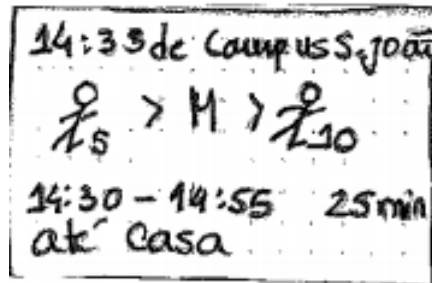 14:33 de Campus S.João
5 > M > 10
14:30 - 14:55 25min
até casa